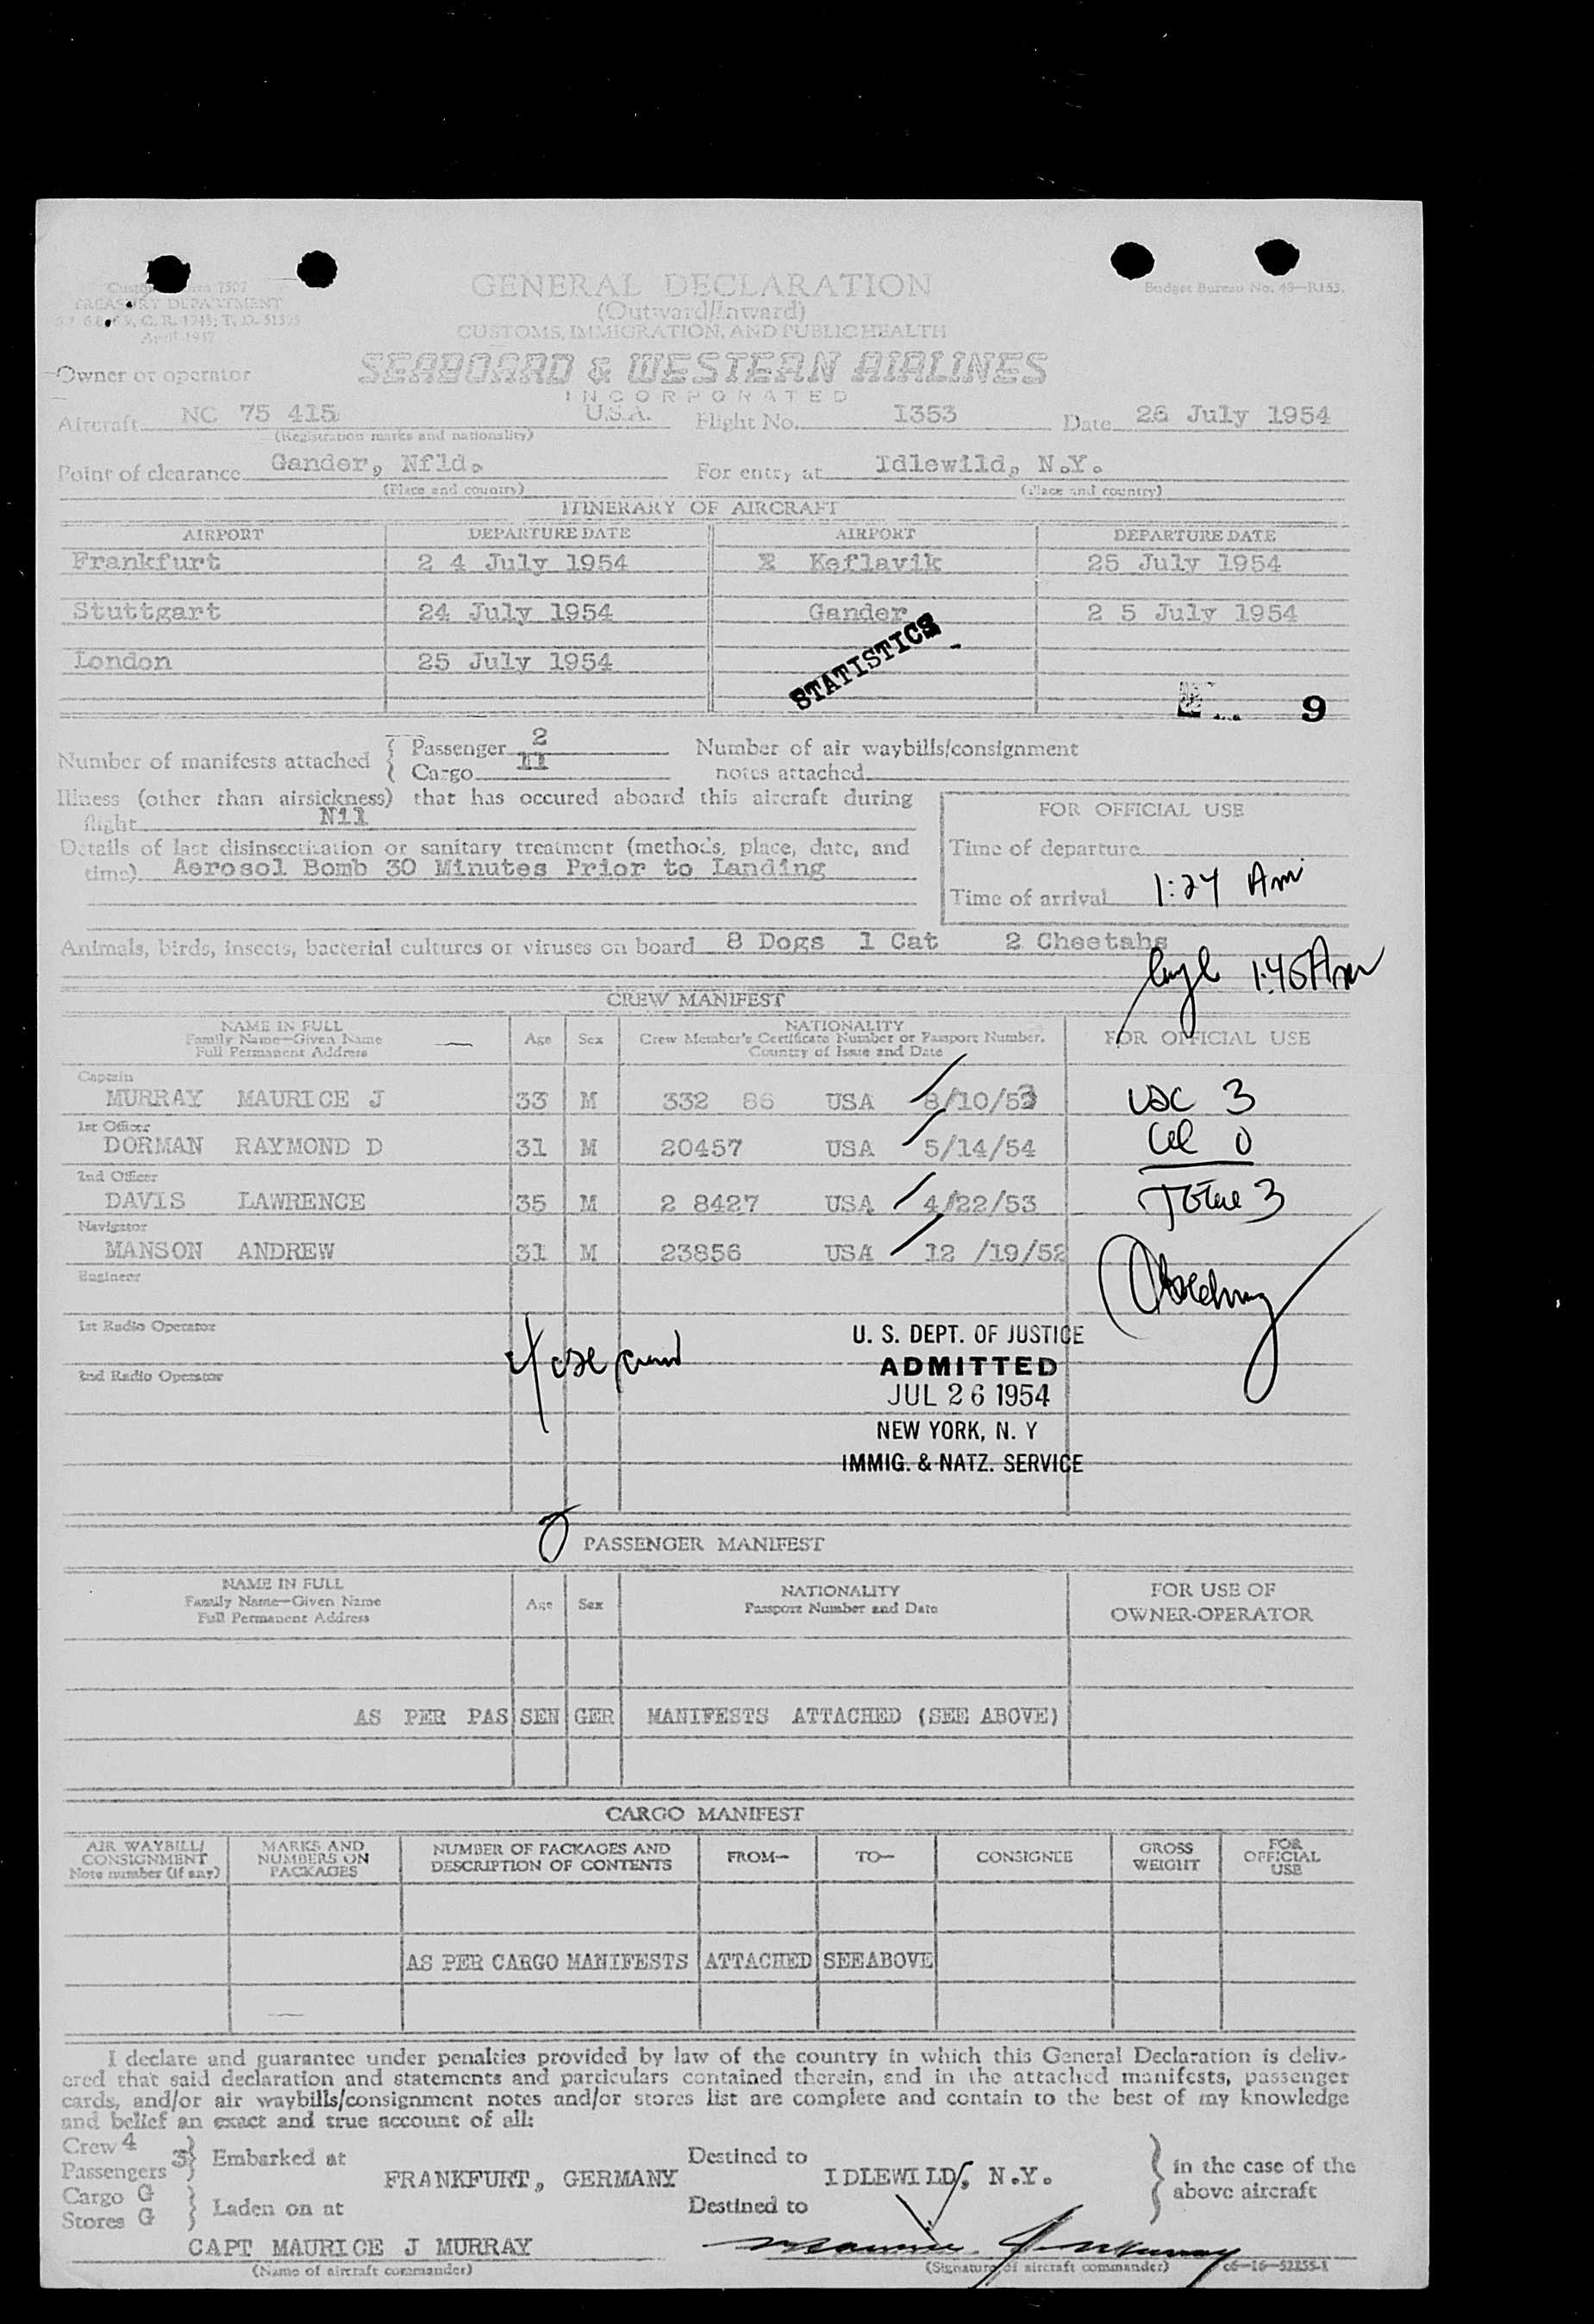 Customs Form 7507
TREASURY DEPARTMENT
April 1947
GENERAL DECLARATION
(Outward/Inward)
CUSTOMS, IMMIGRATION, AND PUBLIC HEALTH
Budget Bureau No. 48—R153.
Owner or operator SEABOARD & WESTERN AIRLINES
INCORPORATED
Aircraft NC 75 415 U.S.A. Flight No. 1353 Date 26 July 1954
(Registration marks and nationality)
Point of clearance Gander, Nfld. For entry at Idlewild, N.Y.
(Place and country) (Place and country)
ITINERARY OF AIRCRAFT
AIRPORT DEPARTURE DATE AIRPORT DEPARTURE DATE
Frankfurt 2 4 July 1954 Keflavik 25 July 1954
Stuttgart 24 July 1954 Gander 2 5 July 1954
London 25 July 1954
STATISTICS
9
Number of manifests attached { Passenger 2 Number of air waybills/consignment
Cargo 11 notes attached
Illness (other than airsickness) that has occured aboard this aircraft during
flight Nil
FOR OFFICIAL USE
Details of last disinsectization or sanitary treatment (methods, place, date, and
time) Aerosol Bomb 30 Minutes Prior to Landing
Time of departure
Time of arrival 1:24 Am
Animals, birds, insects, bacterial cultures or viruses on board 8 Dogs 1 Cat 2 Cheetahs
1:45 Am
CREW MANIFEST
NAME IN FULL
Family Name—Given Name
Full Permanent Address
Age Sex
NATIONALITY
Crew Member's Certificate Number or Passport Number.
Country of Issue and Date
FOR OFFICIAL USE
Captain
MURRAY MAURICE J 33 M 332 86 USA 8/10/53 USC 3
1st Officer
DORMAN RAYMOND D 31 M 20457 USA 5/14/54 0
2nd Officer
DAVIS LAWRENCE 35 M 2 8427 USA 4/22/53 Total 3
Navigator
MANSON ANDREW 31 M 23856 USA 12 /19/52
Engineer
1st Radio Operator
2nd Radio Operator
U. S. DEPT. OF JUSTICE
ADMITTED
JUL 26 1954
NEW YORK, N. Y
IMMIG. & NATZ. SERVICE
PASSENGER MANIFEST
NAME IN FULL
Family Name—Given Name
Full Permanent Address
Age Sex
NATIONALITY
Passport Number and Date
FOR USE OF
OWNER-OPERATOR
AS PER PAS SEN GER MANIFESTS ATTACHED (SEE ABOVE)
CARGO MANIFEST
AIR WAYBILL/
CONSIGNMENT
Note number (if any)
MARKS AND
NUMBERS ON
PACKAGES
NUMBER OF PACKAGES AND
DESCRIPTION OF CONTENTS
FROM— TO— CONSIGNEE
GROSS
WEIGHT
FOR
OFFICIAL
USE
AS PER CARGO MANIFESTS ATTACHED SEEABOVE
I declare and guarantee under penalties provided by law of the country in which this General Declaration is deliv-
ered that said declaration and statements and particulars contained therein, and in the attached manifests, passenger
cards, and/or air waybills/consignment notes and/or stores list are complete and contain to the best of my knowledge
and belief an exact and true account of all:
Crew 4
Passengers 3 } Embarked at FRANKFURT, GERMANY Destined to IDLEWILD, N.Y. } in the case of the
above aircraft
Cargo G
Stores G } Laden on at Destined to
CAPT MAURICE J MURRAY Maurice J Murray
(Name of aircraft commander) (Signature of aircraft commander)